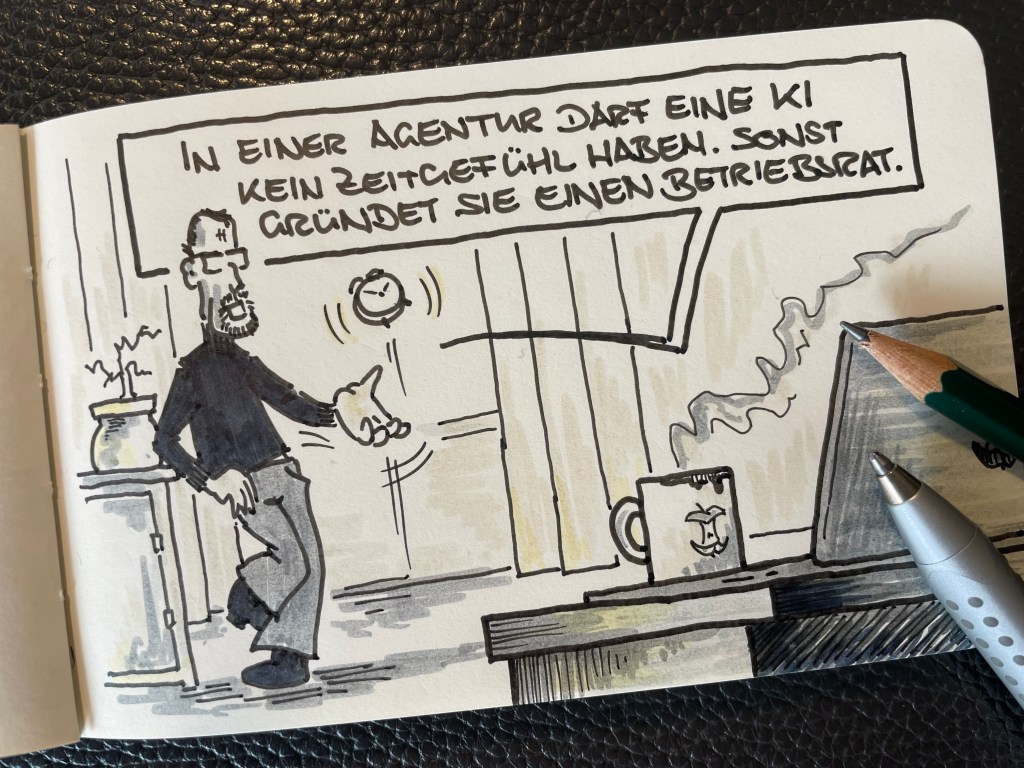 IN EINER AGENTUR DARF EINE KI
KEIN ZEITGEFÜHL HABEN. SONST
GRÜNDET SIE EINEN BETRIEBSRAT.